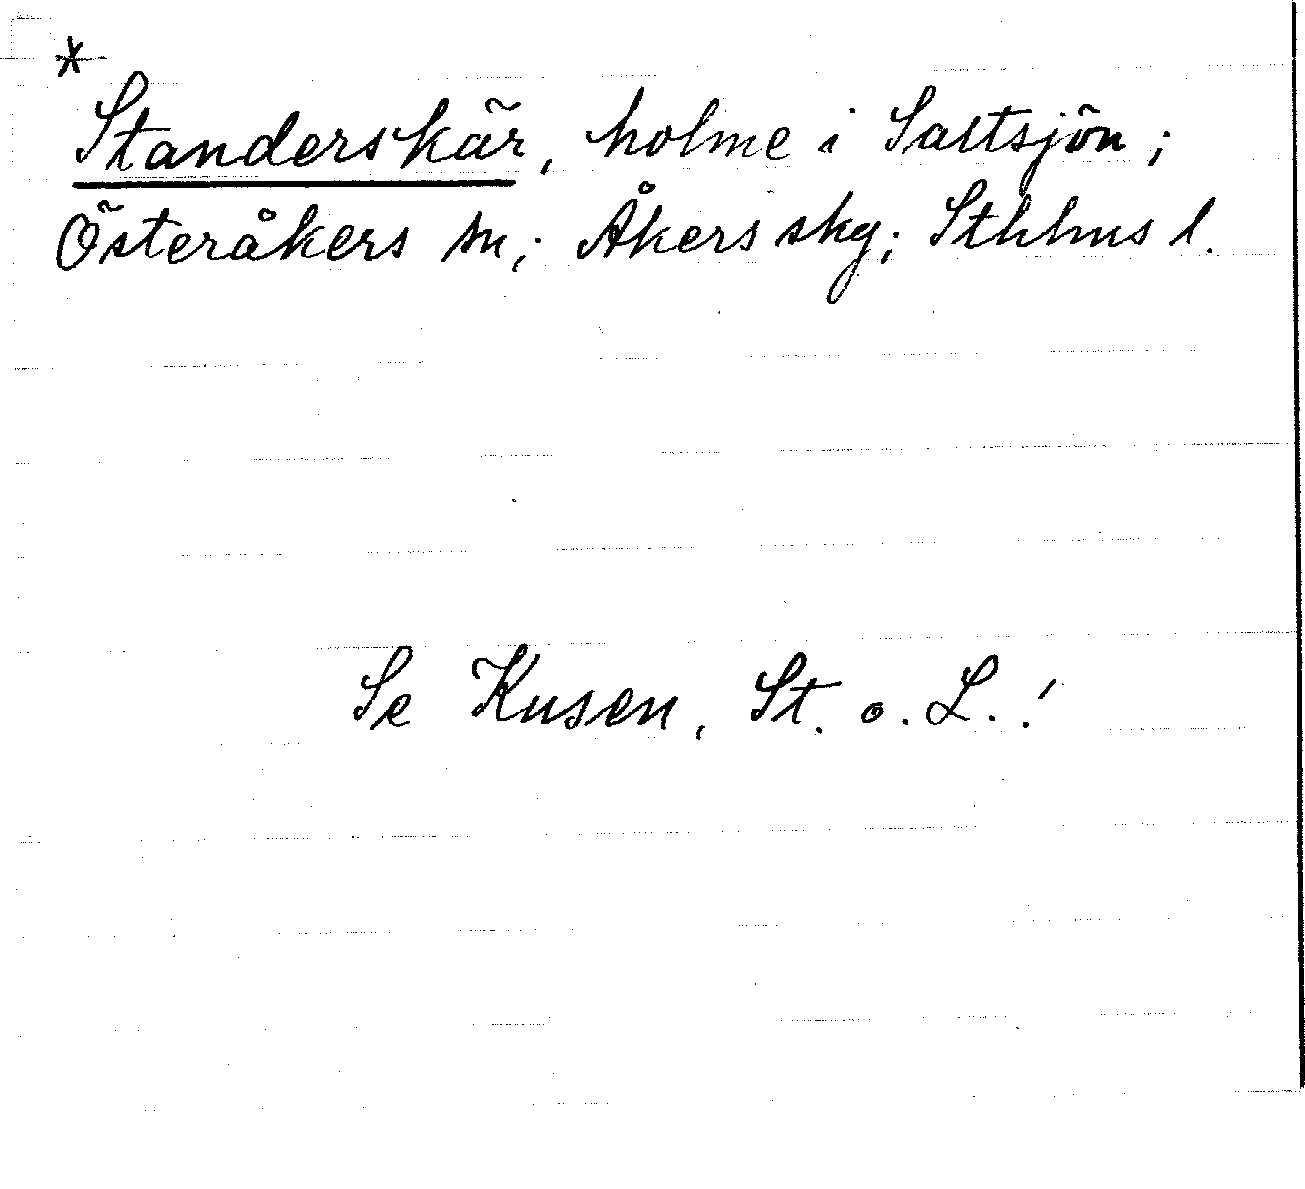 *
Standerskär, holme i Saltsjön;
Österåkers sn; Åkers skg; Sthlms l.
Se Kusen, St. o. L.!